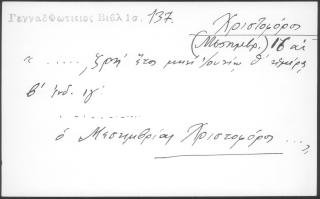 Γενναδ@ωτικιος Βιβλιοσ. 137
Χριστοφόρος
(Μεσημβρ.) 16 αἰ
« ....., ζρπή ἔτος μηνὶ Ἰουνίῳ θ' ἡμέρᾳ
β' Ἰνδ. ιγ'
ὁ Μεσημβρίας Χριστοφόρος ...»